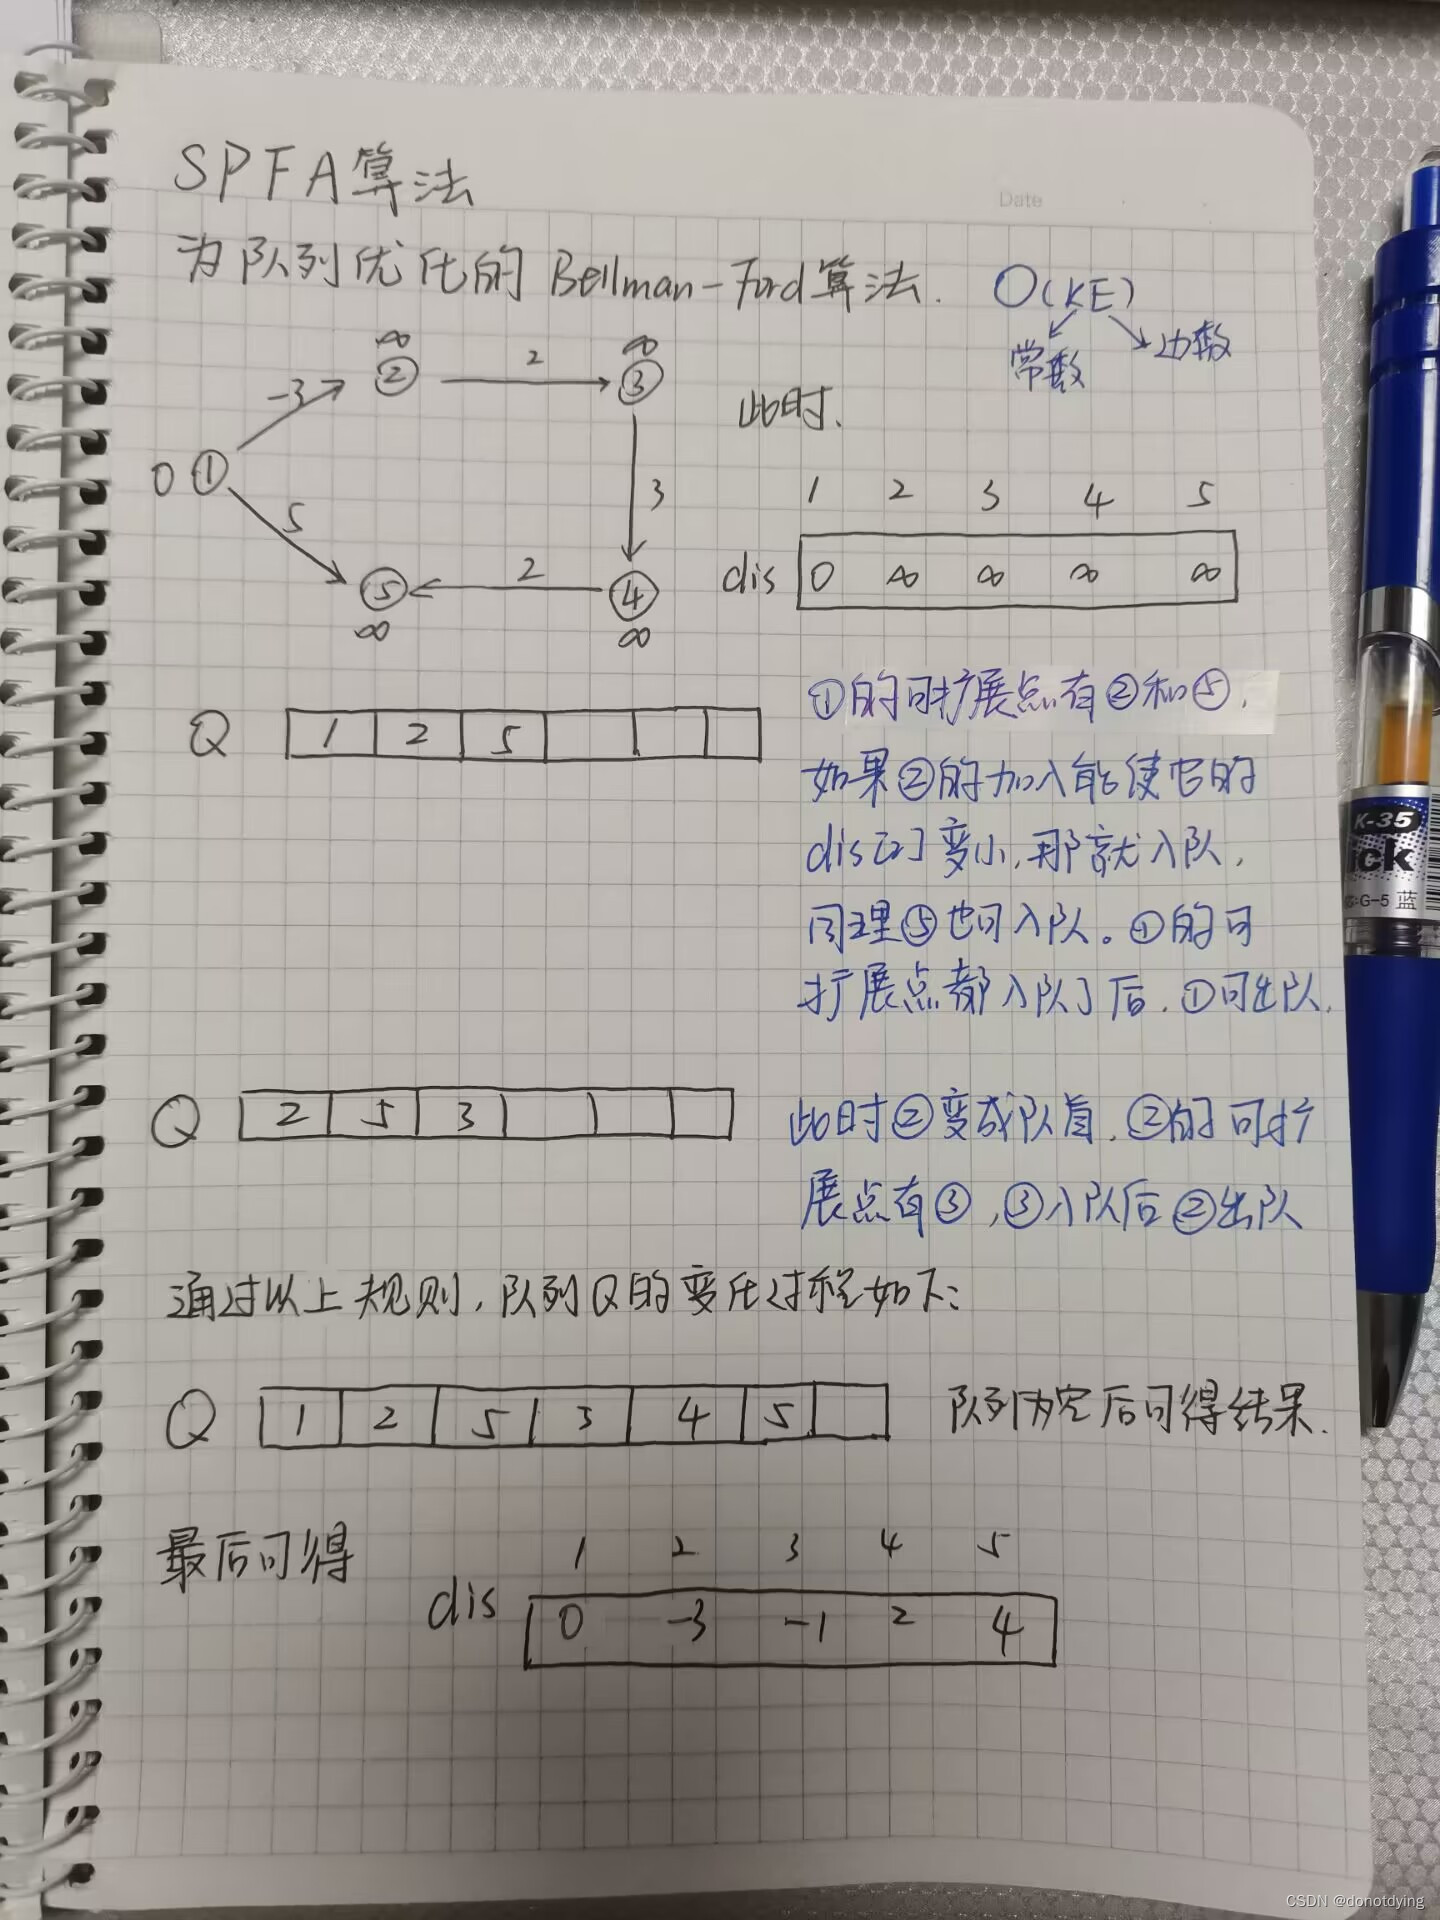 SPFA算法
Date
为队列优化的Bellman-Ford算法. O(KE)
常数 边数
∞ ∞
② 2 ③
-3
此时.
0 ①
5 3
1 2 3 4 5
dis 0 ∞ ∞ ∞ ∞
⑤ 2 ④
∞ ∞
①的可扩展点有②和⑤,
Q 1 2 5
如果②的加入能使它的
dis[2]变小,那就入队,
同理⑤也可入队。①的可
扩展点都入队了后.①可出队.
Q 2 5 3
此时②变成队首,②的可扩
展点有③,③入队后②出队
通过以上规则,队列Q的变化过程如下:
Q 1 2 5 3 4 5
队列为空后可得结果.
最后可得
1 2 3 4 5
dis 0 -3 -1 2 4
K-35
ick
G-5 蓝
CSDN @donotdying